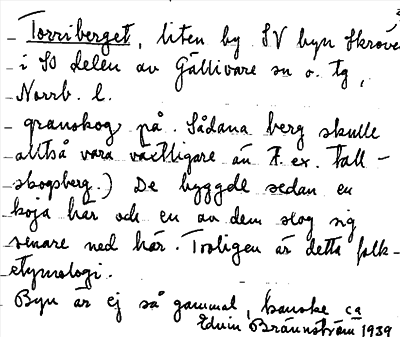 Torriberget, liten by SV byn Skröve
i SO delen av Gällivare sn o. tg,
Norrb. l.
granskog på. Sådana berg skulle
alltså vara växtligare än t. ex. tall-
skogsberg.) De byggde sedan en
koja här och en av dem slog sig
senare ned här. Troligen är detta folk-
etymologi.
Byn är ej så gammal, kanske ca
Edvin Brännström 1939